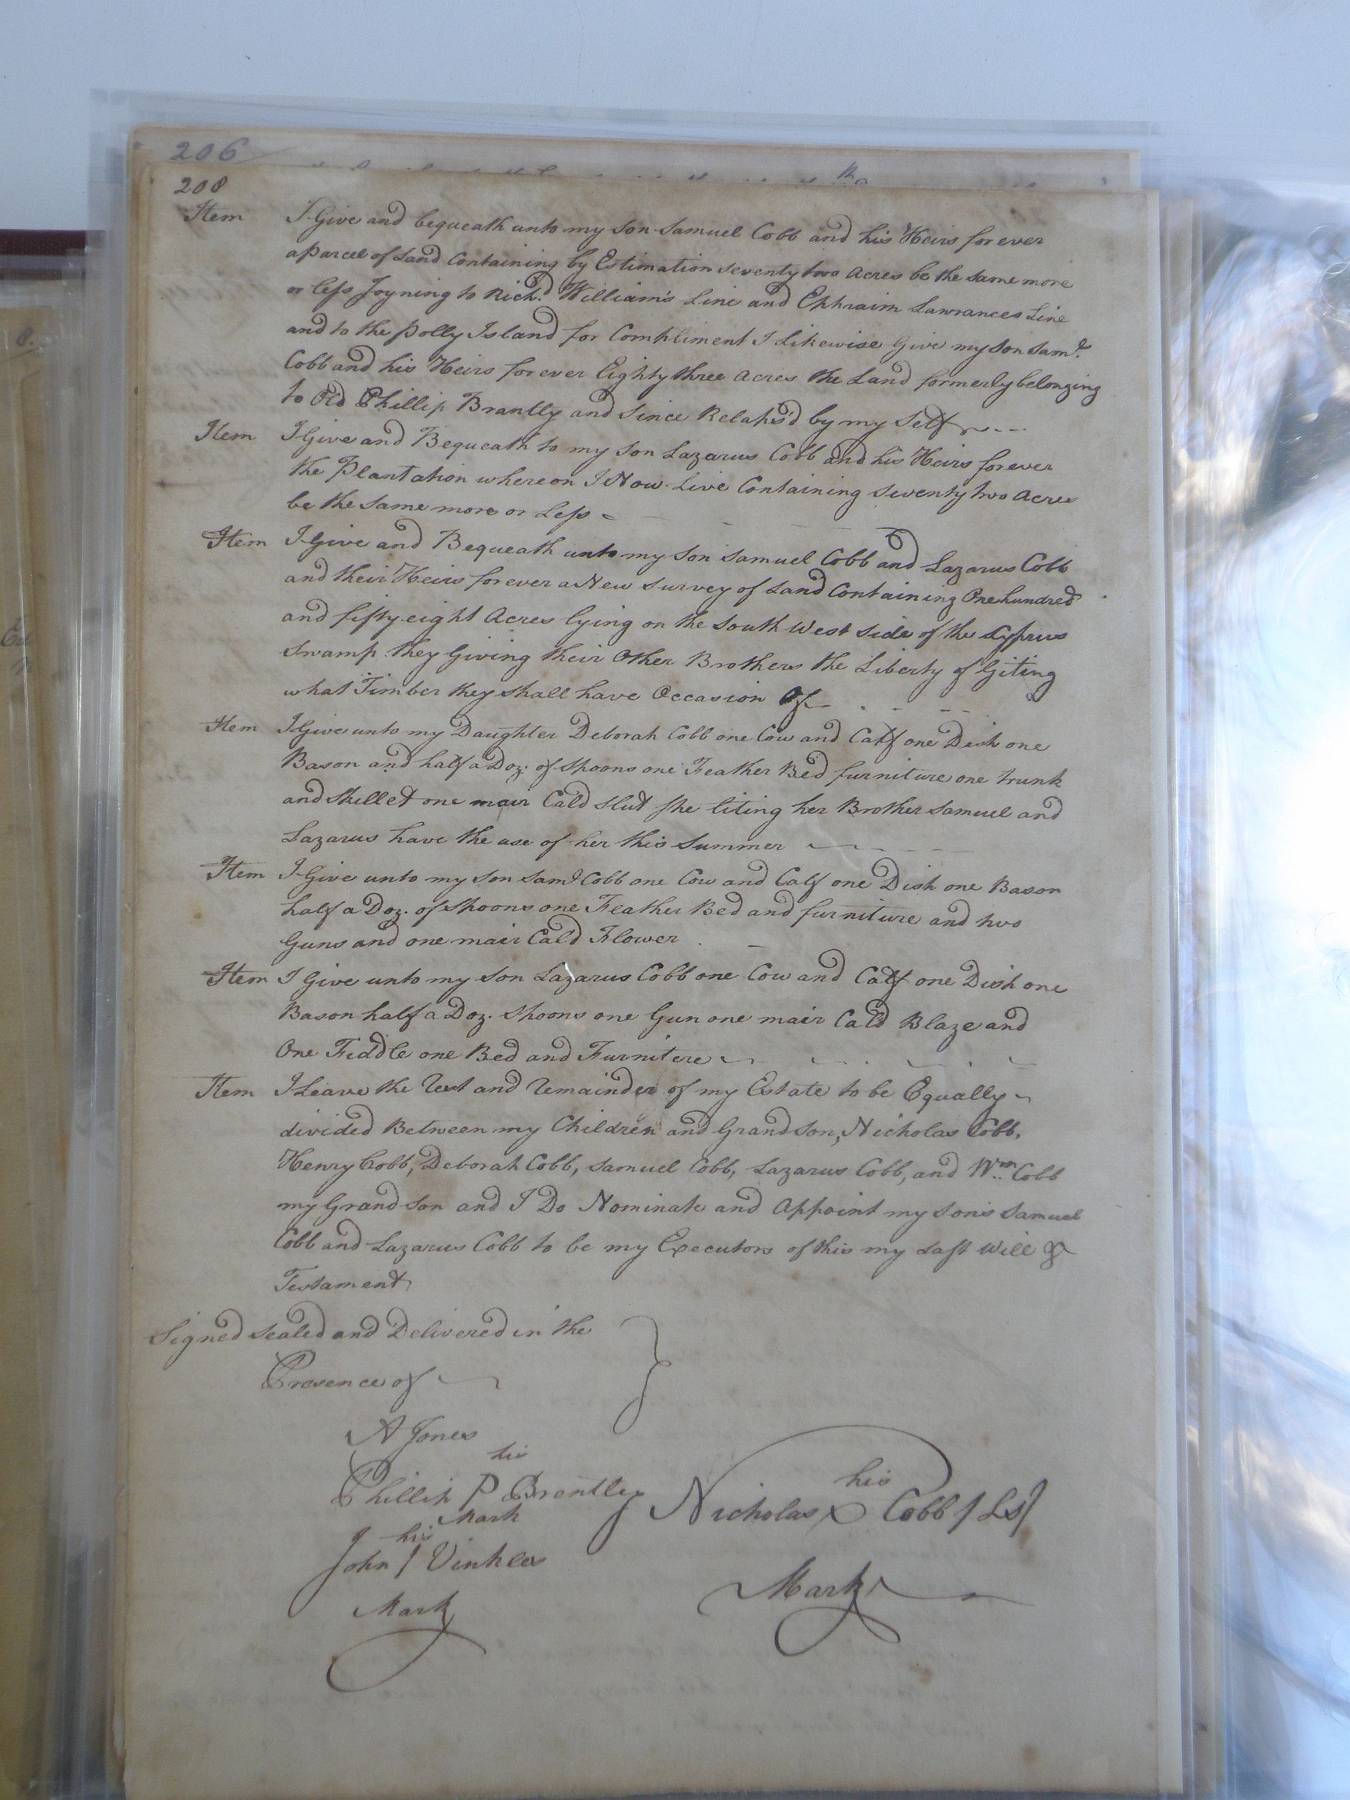 206
208
Item I Give and bequeath unto my son Samuel Cobb and his Heirs for ever
a Parcel of Land Containing by Estimation seventy two Acres be the same more
or less Joyning to Richd. William's Line and Ephraim Lawrances Line
and to the Polly Island for Compliment I Likewise Give my son Saml.
Cobb and his Heirs for ever Eighty three Acres the Land formerly belonging
to Old Phillip Brantly and Since by my Self
Item I Give and Bequeath to my son Lazarus Cobb and his Heirs for ever
the Plantation whereon I Now Live Containing seventy two Acres
be the same more or Less
Item I Give and Bequeath unto my Son Samuel Cobb and Lazarus Cobb
and their Heirs for ever a New Survey of Land Containing One hundred
and fifty eight Acres lying on the South West Side of the Cyprus
Swamp they Giving their Other Brothers the Liberty of Giting
what Timber they shall have Occasion Of
Item I Give unto my Daughter Deborah Cobb one Cow and Calf one Dish one
Bason and half a Doz. of Spoons one Feather Bed furniture one trunk
and Skillet one mair Cald Slut She liting her Brother Samuel and
Lazarus have the use of her this Summer
Item I Give unto my Son Saml Cobb one Cow and Calf one Dish one Bason
half a Doz. of Spoons one Feather Bed and furniture and two
Guns and one mair Cald Flower
Item I Give unto my Son Lazarus Cobb one Cow and Calf one Dish one
Bason half a Doz. Spoons one Gun one mair Cald Blaze and
One Fiddle one Bed and Furnitere
Item I Leave the Rest and Remainder of my Estate to be Equally
divided Between my Children and Grandson, Nicholas Cobb,
Henry Cobb, Deborah Cobb, Samuel Cobb, Lazarus Cobb, and Wm. Cobb
my Grandson and I Do Nominate and Appoint my Sons Samuel
Cobb and Lazarus Cobb to be my Executors of this my Last Will &
Testament
Signed Sealed and Delivered in the
Presence of
A Jones
his
Phillip P Brantley
Mark
his
John Vinkles
Mark
his
Nicholas X Cobb (LS)
Mark